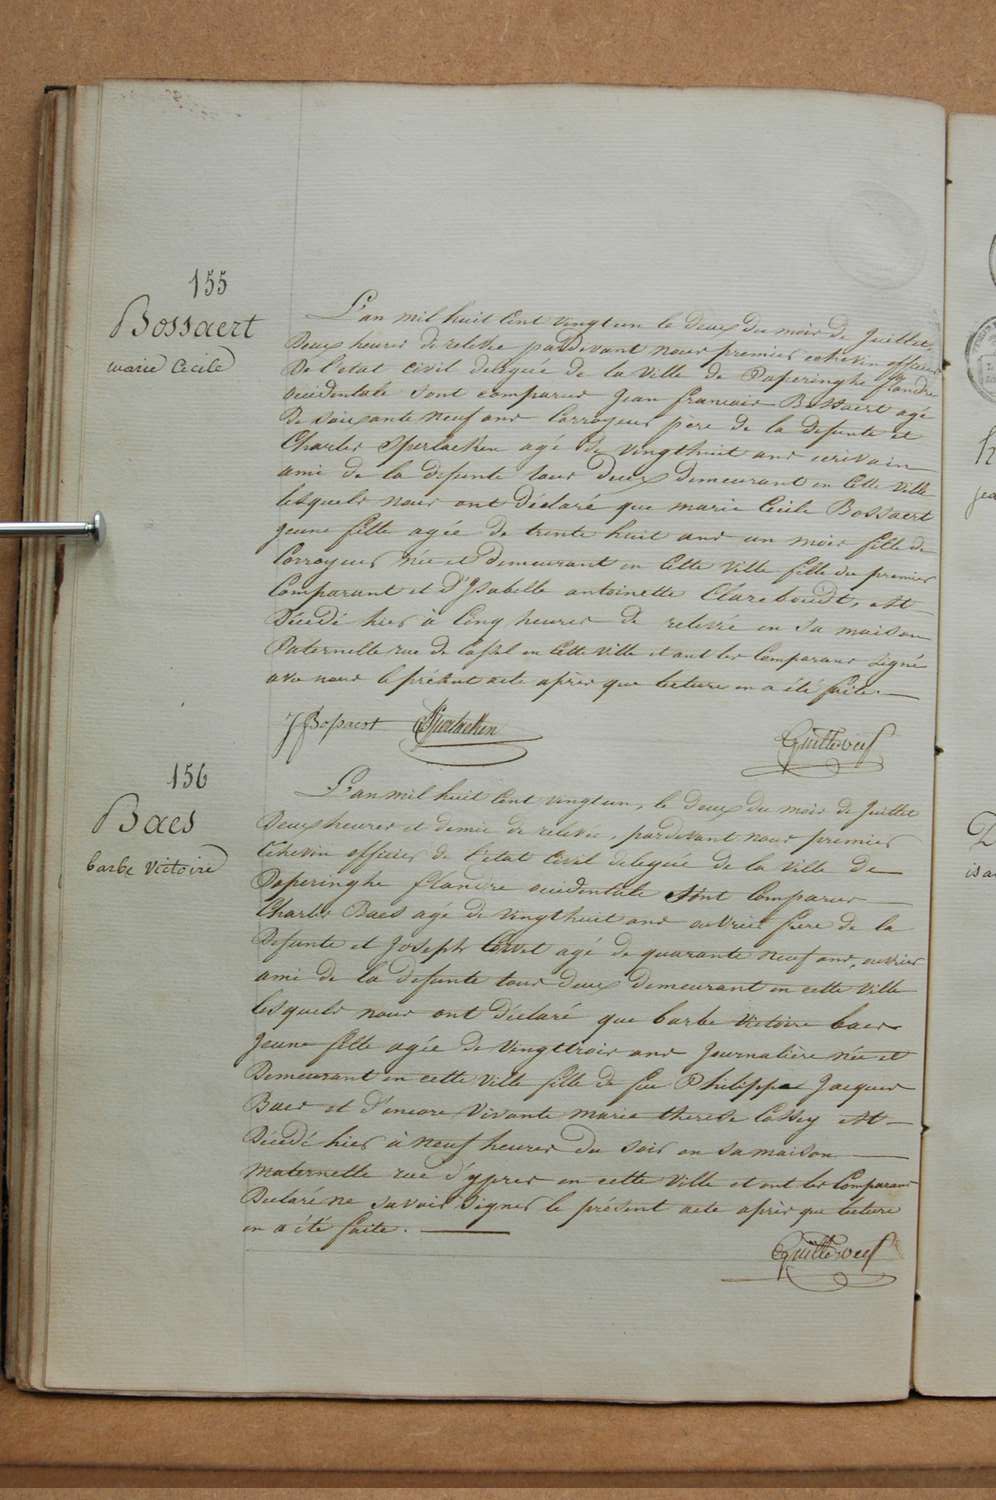 155
Bossaert
marie Cecile
L'an mil huit Cent vingtun le deux du mois de Juillet,
Deux heures de relevée pardevant nous premier echevin officier
De l'etat Civil deleguée de la Ville de Poperinghe flandre
occidentale sont comparus Jean francois Bossaert agé
De soixante neuf ans Corroyeur père de la defunte et
Charles Sperlaeken agé de vingthuit ans ecrivain
ami de la defunte tous deux demeurant en Cette Ville
lesquels nous ont déclaré que marie Cecile Bossaert
jeune fille agée de trente huit ans un mois fille de
Corroyeur née et demeurant en Cette Ville fille du premier
Comparant et d'Isabelle antoinette Clareboudt, est
Décédé hier à Cinq heures de relevée en sa maison
Paternelle rue de Cassel en Cette Ville et ont les Comparans Signé
avec nous le présent acte après que lecture en a été faite.
J F Bossaert Sperlaeken
Guilleweef
156
Baes
barbe Victoire
L'an mil huit Cent vingtun, le deux du mois de Juillet
Deux heures et demie de relevée, pardevant nous premier
Echevin officier de l'etat Civil deleguée de la Ville de
Poperinghe flandre occidentale sont Comparus
Charles Baes agé de vingthuit ans ouvrier frere de la
Defunte et Joseph agé de quarante neuf ans, ouvrier
ami de la defunte tous deux demeurant en cette Ville
lesquels nous ont déclaré que barbe Victoire baes
Jeune fille agée de Vingttrois ans Journalière née et
Demeurant en cette Ville fille de feu Philippe Jacques
Baes et d'encore Vivante marie therese Cassey est
Décédé hier à neuf heures du soir en sa maison
Maternelle rue d'ypres en cette Ville et ont les Comparans
Declaré ne savoir Signer le présent acte après que lecture
en a été faite.
Guilleweef